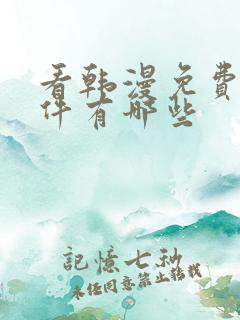 看韩漫免费
件有哪些
記憶七秒
未经同意禁止转载